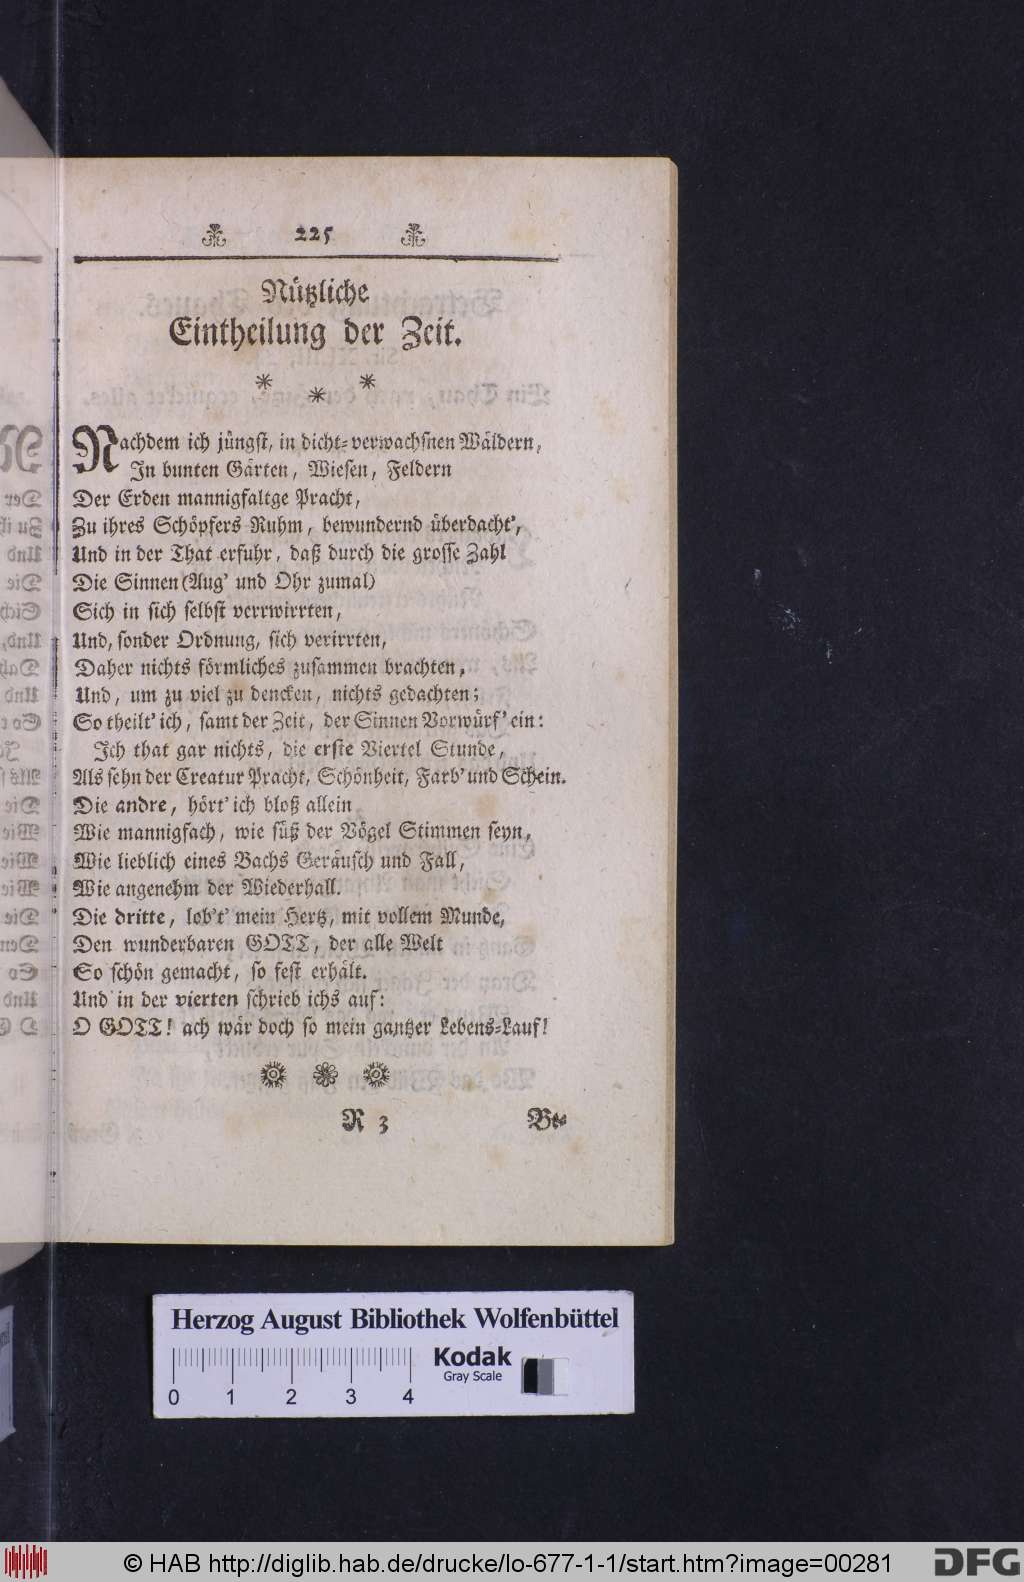 225
Nützliche
Eintheilung der Zeit.
* * *
Nachdem ich jüngst, in dicht-verwachsnen Wäldern,
In bunten Gärten, Wiesen, Feldern
Der Erden mannigfaltge Pracht,
Zu ihres Schöpfers Ruhm, bewundernd überdacht',
Und in der That erfuhr, daß durch die grosse Zahl
Die Sinnen (Aug' und Ohr zumal)
Sich in sich selbst verrwirrten,
Und, sonder Ordnung, sich verirrten,
Daher nichts förmliches zusammen brachten,
Und, um zu viel zu dencken, nichts gedachten;
So theilt' ich, samt der Zeit, der Sinnen Vorwürf' ein:
Ich that gar nichts, die erste Viertel Stunde,
Als sehn der Creatur Pracht, Schönheit, Farb' und Schein.
Die andre, hört' ich bloß allein
Wie mannigfach, wie süß der Vögel Stimmen seyn,
Wie lieblich eines Bachs Geräusch und Fall,
Wie angenehm der Wiederhall.
Die dritte, lob't' mein Hertz, mit vollem Munde,
Den wunderbaren GOTT, der alle Welt
So schön gemacht, so fest erhält.
Und in der vierten schrieb ichs auf:
O GOTT! ach wär doch so mein gantzer Lebens-Lauf!
R 3 Be-
Herzog August Bibliothek Wolfenbüttel
Kodak
Gray Scale
0 1 2 3 4
© HAB http://diglib.hab.de/drucke/lo-677-1-1/start.htm?image=00281
DFG